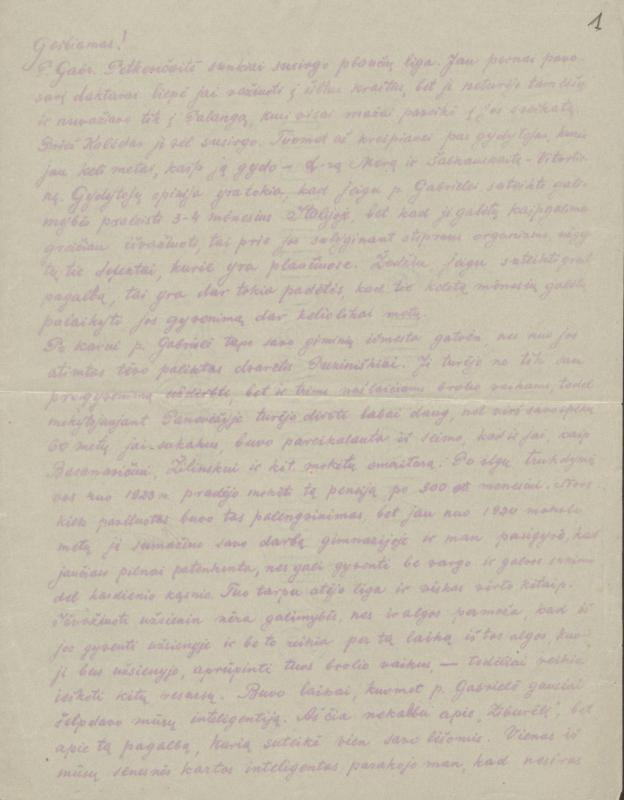 1
Gerbiamas!
P. Gabr. Petkevičaitė sunkiai susirgo plaučių liga. Jau pernai pava-
sarį daktarai liepė jai važiuoti į šiltus kraštus, bet ji neturėjo tam lėšų
ir nuvažiavo tik į Palangą, kuri visai mažai paveikė į jos sveikatą.
Prieš Kalėdas ji vėl susirgo. Tuomet aš kreipiausi pas gydytojus, kurie
jau keli metai, kaip ją gydo — D-rą Merą ir
Gydytojų opinija yra tokia, kad jeigu p. Gabrielei suteikti gali-
mybės praleisti 3-4 mėnesius Italijoje, bet kad ji galėtų kaip galima
greičiau išvažiuoti, tai prie jos sulyginant stipraus organizmo,
tie defektai, kurie yra plaučiuose. Žodžiu jeigu suteikti greit
pagalbą, tai yra dar tokia padėtis, kad tie keletą mėnesių galėtų
palaikyti jos gyvenimą dar keliolikai metų.
Po karui p. Gabrielė tapo savo giminių išmesta gatvėn, nes nuo jos
atimtas tėvo paliktas dvarelis Puziniškiai. Ji turėjo ne tik sau
pragyvenimą uždirbti, bet ir trims našlaičiams brolio vaikams, todėl
mokytojaujant Panevėžyje turėjo dirbti labai daug, net virš savo spėkų
60 metų jai sukakus, buvo pareikalauta iš seimo, kad ir jai, kaip
Basanavičiui, Žilinskui ir kit. mokėtų emeritūrą. Po ilgų trukdymų
vos nuo 1923 m. pradėjo mokėti tą pensiją po 300 lt mėnesiui. Nors
kiek pavėluotas buvo tas palengvinimas, bet jau nuo 1924 mokslo
metų ji sumažino savo darbą gimnazijoje ir man pasigyrė, kad
jaučiasi pilnai patenkinta, nes gali gyventi be vargo ir galvos sukimo
dėl kasdienio kąsnio. Tuo tarpu atėjo liga ir viskas virto kitaip.
Išvažiuoti užsienin nėra galimybės, nes ir algos permaža, kad iš
jos gyventi užsienyje ir be to reikia per tą laiką iš tos algos, kuo-
ji bus užsienyje, aprūpinti tuos brolio vaikus — todėliai reikia
ieškoti kitų resursų. Buvo laikai, kuomet p. Gabrielė gausiai
šelpdavo mūsų inteligentiją. Aš čia nekalbu apie „Žiburėlį", bet
apie tą pagalbą, kurią suteikė vien savo lėšomis. Vienas iš
mūsų senesnės kartos inteligentas pasakojo man, kad nesiras